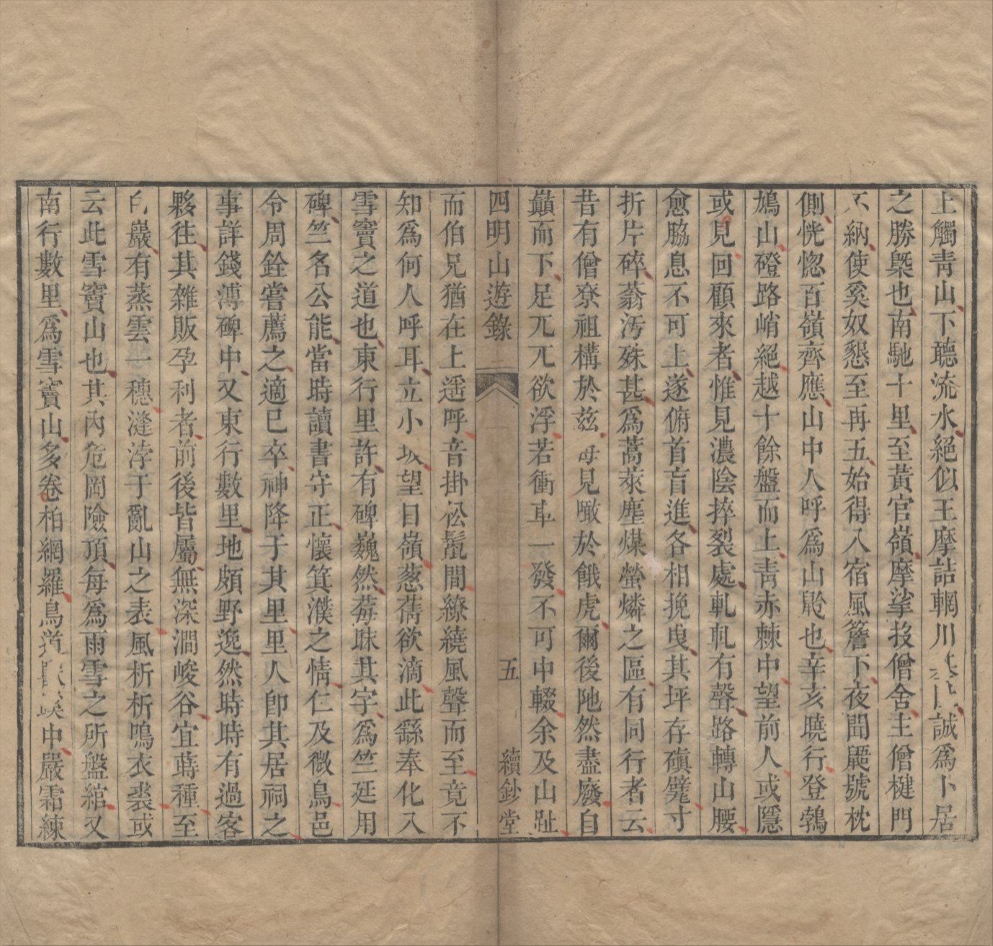 上觸青山下聽流水絕似王摩詰輞川誠爲卜居
之勝槩也南馳十里至黃官嶺摩挲投僧舍主僧楗門
不納使奚奴懇至再五始得入宿風簷下夜聞颶號枕
側恍惚百嶺齊應山中人呼爲山㱾也辛亥曉行登鵓
鳩山磴路峭絕越十餘盤而上靑赤棘中望前人或隱
或見回顧來者惟見濃陰捽裂處軋軋有聲路轉山腰
愈脇息不可上遂俯首盲進各相挽曳其坪存磧甓寸
折片碎蓊汚殊甚爲蒿萊塵煤螢燐之區有同行者云
昔有僧尞祖構於兹母見瞰於餓虎爾後阤然盡廢自
巔而下足兀兀欲浮若衝車一發不可中輟余及山趾
四明山遊錄
五
續鈔堂
而伯兄猶在上遥呼音掛松鬣間繚繞風聲而至竟不
知爲何人呼耳立小坂望日嶺葱蒨欲滴此繇奉化入
雪竇之道也東行里許有碑巍然莓昧其字爲竺延用
碑竺名公能當時讀書守正懷箕濮之情仁及微鳥邑
令周銓嘗薦之適已卒神降于其里里人卽其居祠之
事詳錢溥碑中又東行數里地頗野逸然時時有過客
夥往其雜販孕利者前後皆屬無深澗峻谷宜蒔種至
白巖有蒸雲一穗漨浡于亂山之表風析析鳴衣裘或
云此雪竇山也其內危岡險頂每爲雨雪之所盤綰又
南行數里爲雪竇山多卷柏網羅鳥道中嚴霜練